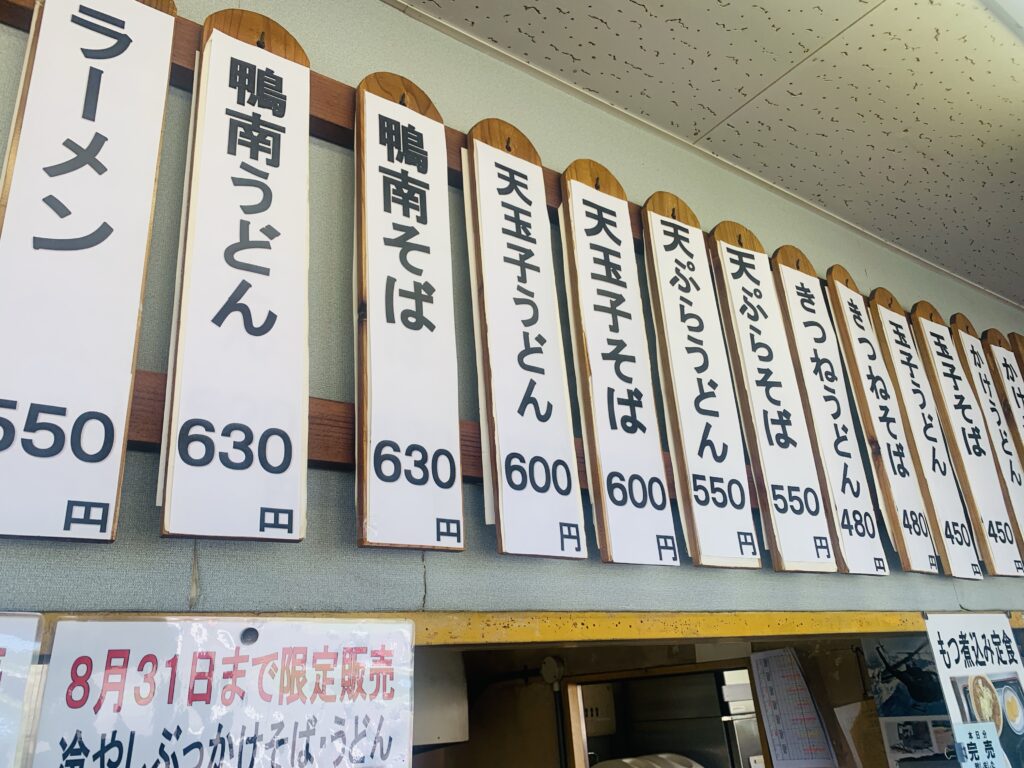 ラーメン
550
円
鴨南うどん
630
円
鴨南そば
630
円
天玉子うどん
600
円
天玉子そば
600
円
天ぷらうどん
550
円
天ぷらそば
550
円
きつねうどん
480
円
きつねそば
480
円
玉子うどん
450
円
玉子そば
450
円
かけうどん
かけ
8月31日まで限定販売
冷やしぶっかけそば・うどん
もつ煮込み定食
本日分
完売